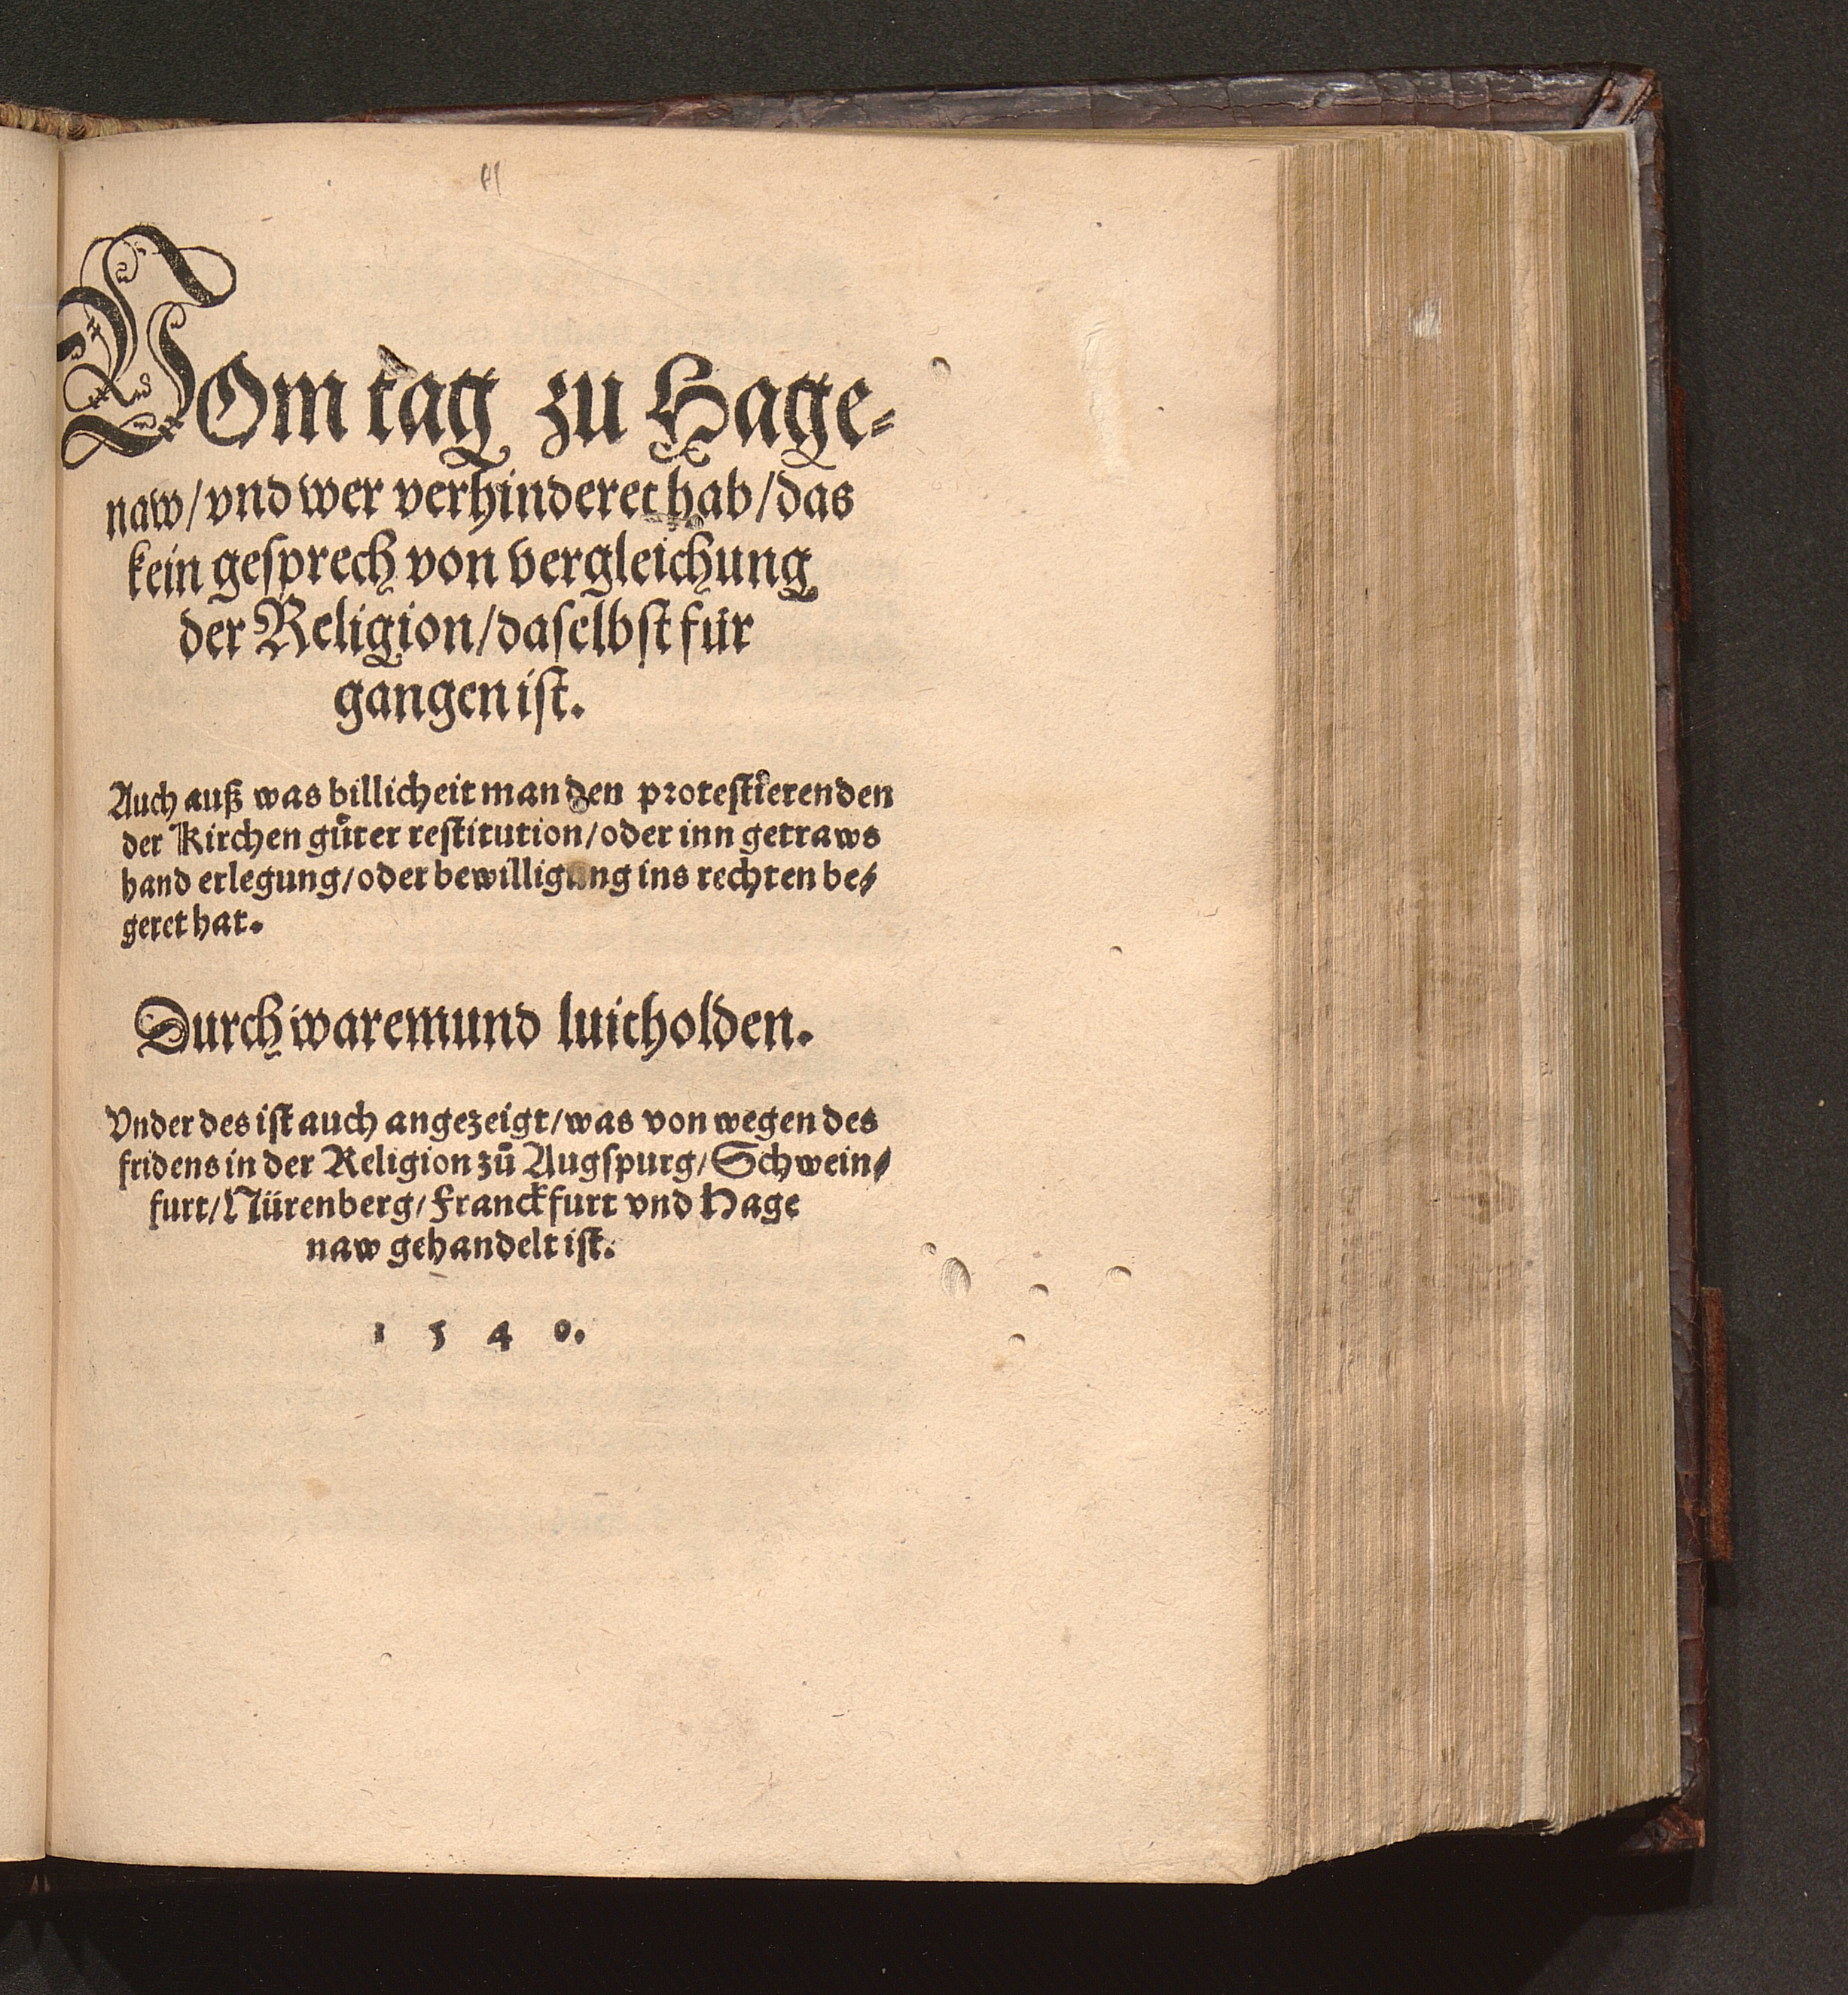 VOm tag zu Hage-
naw/vnd wer verhinderet hab/das
kein gesprech von vergleichung
der Religion/daselbst für
gangen ist.
Auch auß was billicheit man den protestierenden
der Kirchen guͤter restitution/oder inn getraws
hand erlegung/oder bewilligung ins rechten be-
geret hat.
Durch waremund luitholden.
Vnder des ist auch angezeigt/was von wegen des
fridens in der Religion zuͦ Augspurg/Schwein-
furt/Nürenberg/Franckfurt vnd Hage
naw gehandelt ist.
1 5 4 0.